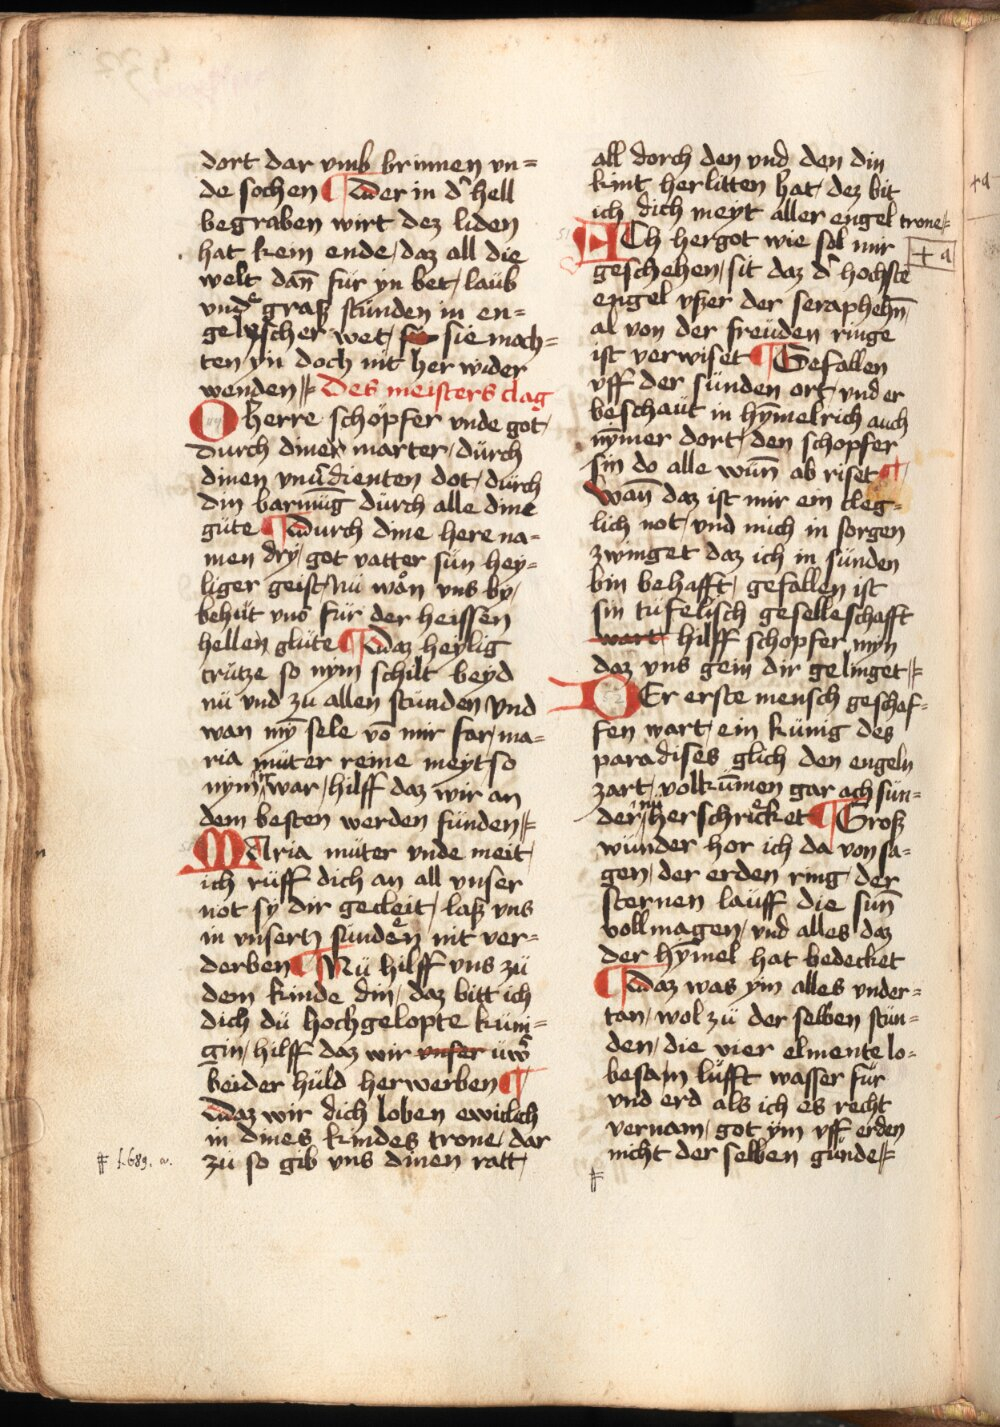 dort dar vmb brinnen vn=
de sochen ¶ Wer in d' hell
begraben wirt dez liden
hat kein ende / daz all die
welt dan̄ für yn bet / laüb
vnd graß stünden in en=
gelescher wet / sie moch=
ten yn doch nit her wider
wenden Des meisters clag
O herre schöpfer vnde got /
Durch diner marter / dürch
dinen vnu'dienten dot / dürch
din barmūg dürch alle dine
güte ¶ Durch dine here na=
men dry / got vatter sün hey=
liger geist / Nü won vns by /
behüt vns für der heissen
hellen glüte ¶ Daz heylig
crütze so nym schilt beyd
nü vnd zu allen stünden vnd
wan my̅ sele vō mir far / ma=
ria müter reine meyt so
nym war / hilff daz wir an
dem besten werden fünden
MAria müter vnde meit /
ich rüff dich an all vnser
not sy dir gecleit / laß vns
in vnsern sünden nit ver=
derben ¶ Nü hilff vns zü
dem kinde din / daz bitt ich
dich dü hochgelopte küni=
gin / hilff daz wir vnser üw'
beider hüld herwerben ¶
Daz wir dich loben ewiclich
in dines kindes trone / dar
zü so gib vns dinen ratt /
# f. 689. a.
all dorch den vnd den din
kint herlitten hat / dez bit
ich dich meyt aller engel trone
ACh hergot wie sol mir
+ a
geschehen / sit daz d' hochste
engel vßer der seraphehn̄
al von der freüden ringe
ist verwiset ¶ Gefallen
vff der sünden ort / vnd er
beschaüt in hȳmelrich auch
nȳmer dort / den schopfer
sin do alle wün̄ ab riset ¶
Wan̄ daz ist mir ein cleg=
lich not / vnd mich in sorgen
zwinget daz ich in sünden
bin behafft / gefallen ist
sin tufelisch geselleschafft
wart hilff schopfer myn
daz vns gein dir gelinget
DEr erste mensch geschef=
fen wart / ein künig des
paradises glich den engeln
zart / volkūmen gar ach sün=
der nü herschricket ¶ Groß
wünder hor ich da von sa=
gen / der erden ring / der
sternen lauff die sün̄
voll magen / vnd alles daz
der hymel hat bedecket
¶ Daz was yim alles vnder=
tan / wol zü der selben stün=
den / die vier elmente lo=
besam lüfft wasser für
vnd erd als ich es recht
vernam / got ym vff erden
nicht der selben günde
#